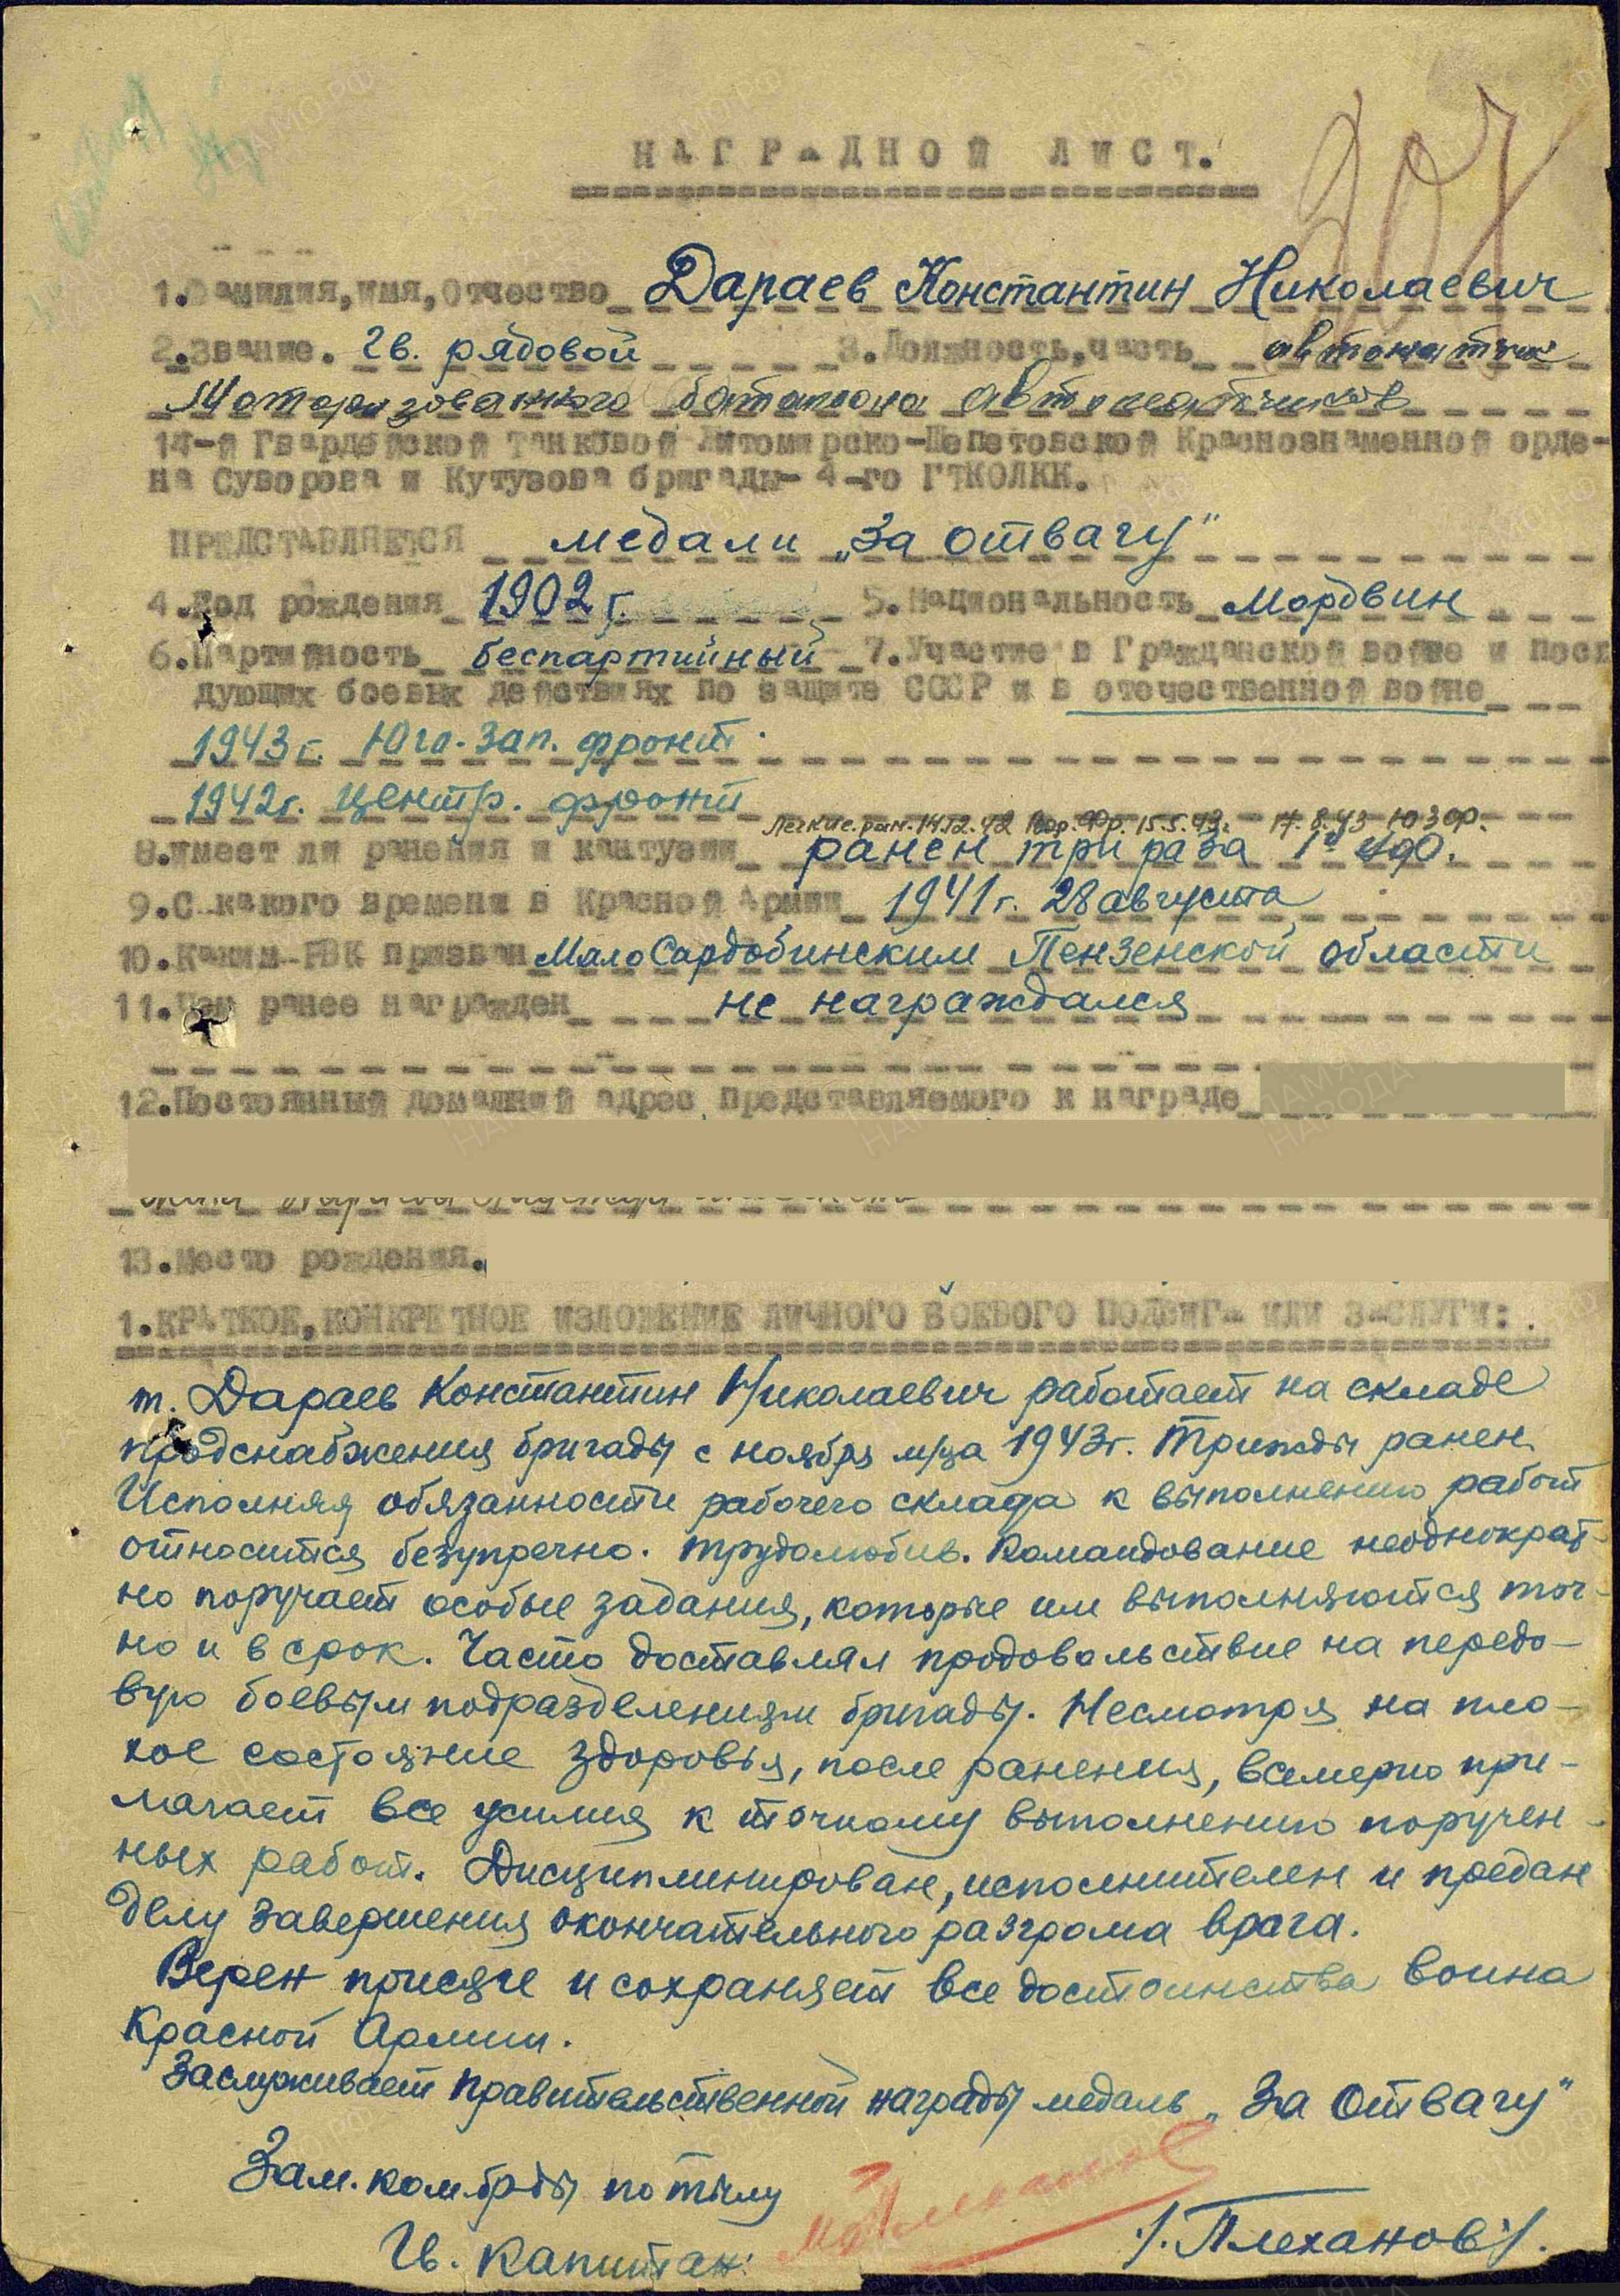 207
НАГРАДНОЙ ЛИСТ.
1.Фамилия,имя,Отчество Дараев Константин Николаевич
2.Звание. Гв. рядовой 3.Должность,часть автоматчик
Моторизованного батальона автоматчиков
14-й Гвардейской танковой Житомирско-Шепетовской Краснознаменной орде-
на Суворова и Кутузова бригады- 4-го ГТКОЛКК.
ПРЕДСТАВЛЯЕТСЯ медали „За отвагу"
4.Год рождения 1902 г. 5.Национальность Мордвин
6.Партийность беспартийный 7.Участие в Гражданской войне и посл
дующих боевых действиях по защите СССР и в отечественной войне
1943 г. Юго-Зап. фронт.
1942 г. Центр. фронт
Легкие. ран. 14.12.42 Вор. Фр. 15.5.43г. 17.8.43 ЮЗФр.
8.Имеет ли ранения и кантузии ранен три раза
9.С какого времени в Красной Армии 1941 г. 28 августа
10.Каким РВК призван МалоСардобинским Пензенской области
11.Чем ранее награжден не награждался
12.Постоянный домашний адрес представляемого к награде
13.Место рождения.
1.КРАТКОЕ,КОНКРЕТНОЕ ИЗЛОЖЕНИЕ ЛИЧНОГО БОЕВОГО ПОДВИГА ИЛИ ЗАСЛУГИ:.
т. Дараев Константин Николаевич работает на складе
продснабжения бригады с ноября м/ца 1943г. Трижды ранен.
Исполняя обязанности рабочего склада к выполнению работ
относится безупречно. трудолюбив. Командование неоднократ-
но поручает особые задания, которые им выполняются точ-
но и в срок. Часто доставлял продовольствие на передо-
вую боевым подразделениям бригады. Несмотря на пло-
хое состояние здоровья, после ранения, всемерно при-
лагает все усилия к точному выполнению поручен-
ных работ. Дисциплинирован, исполнителен и предан
делу завершения окончательного разгрома врага.
Верен присяге и сохраняет все достоинства воина
Красной Армии.
Заслуживает правительственной награды медаль „За Отвагу"
Зам. комбрды по тылу
Гв. Капитан: /. Плеханов /.